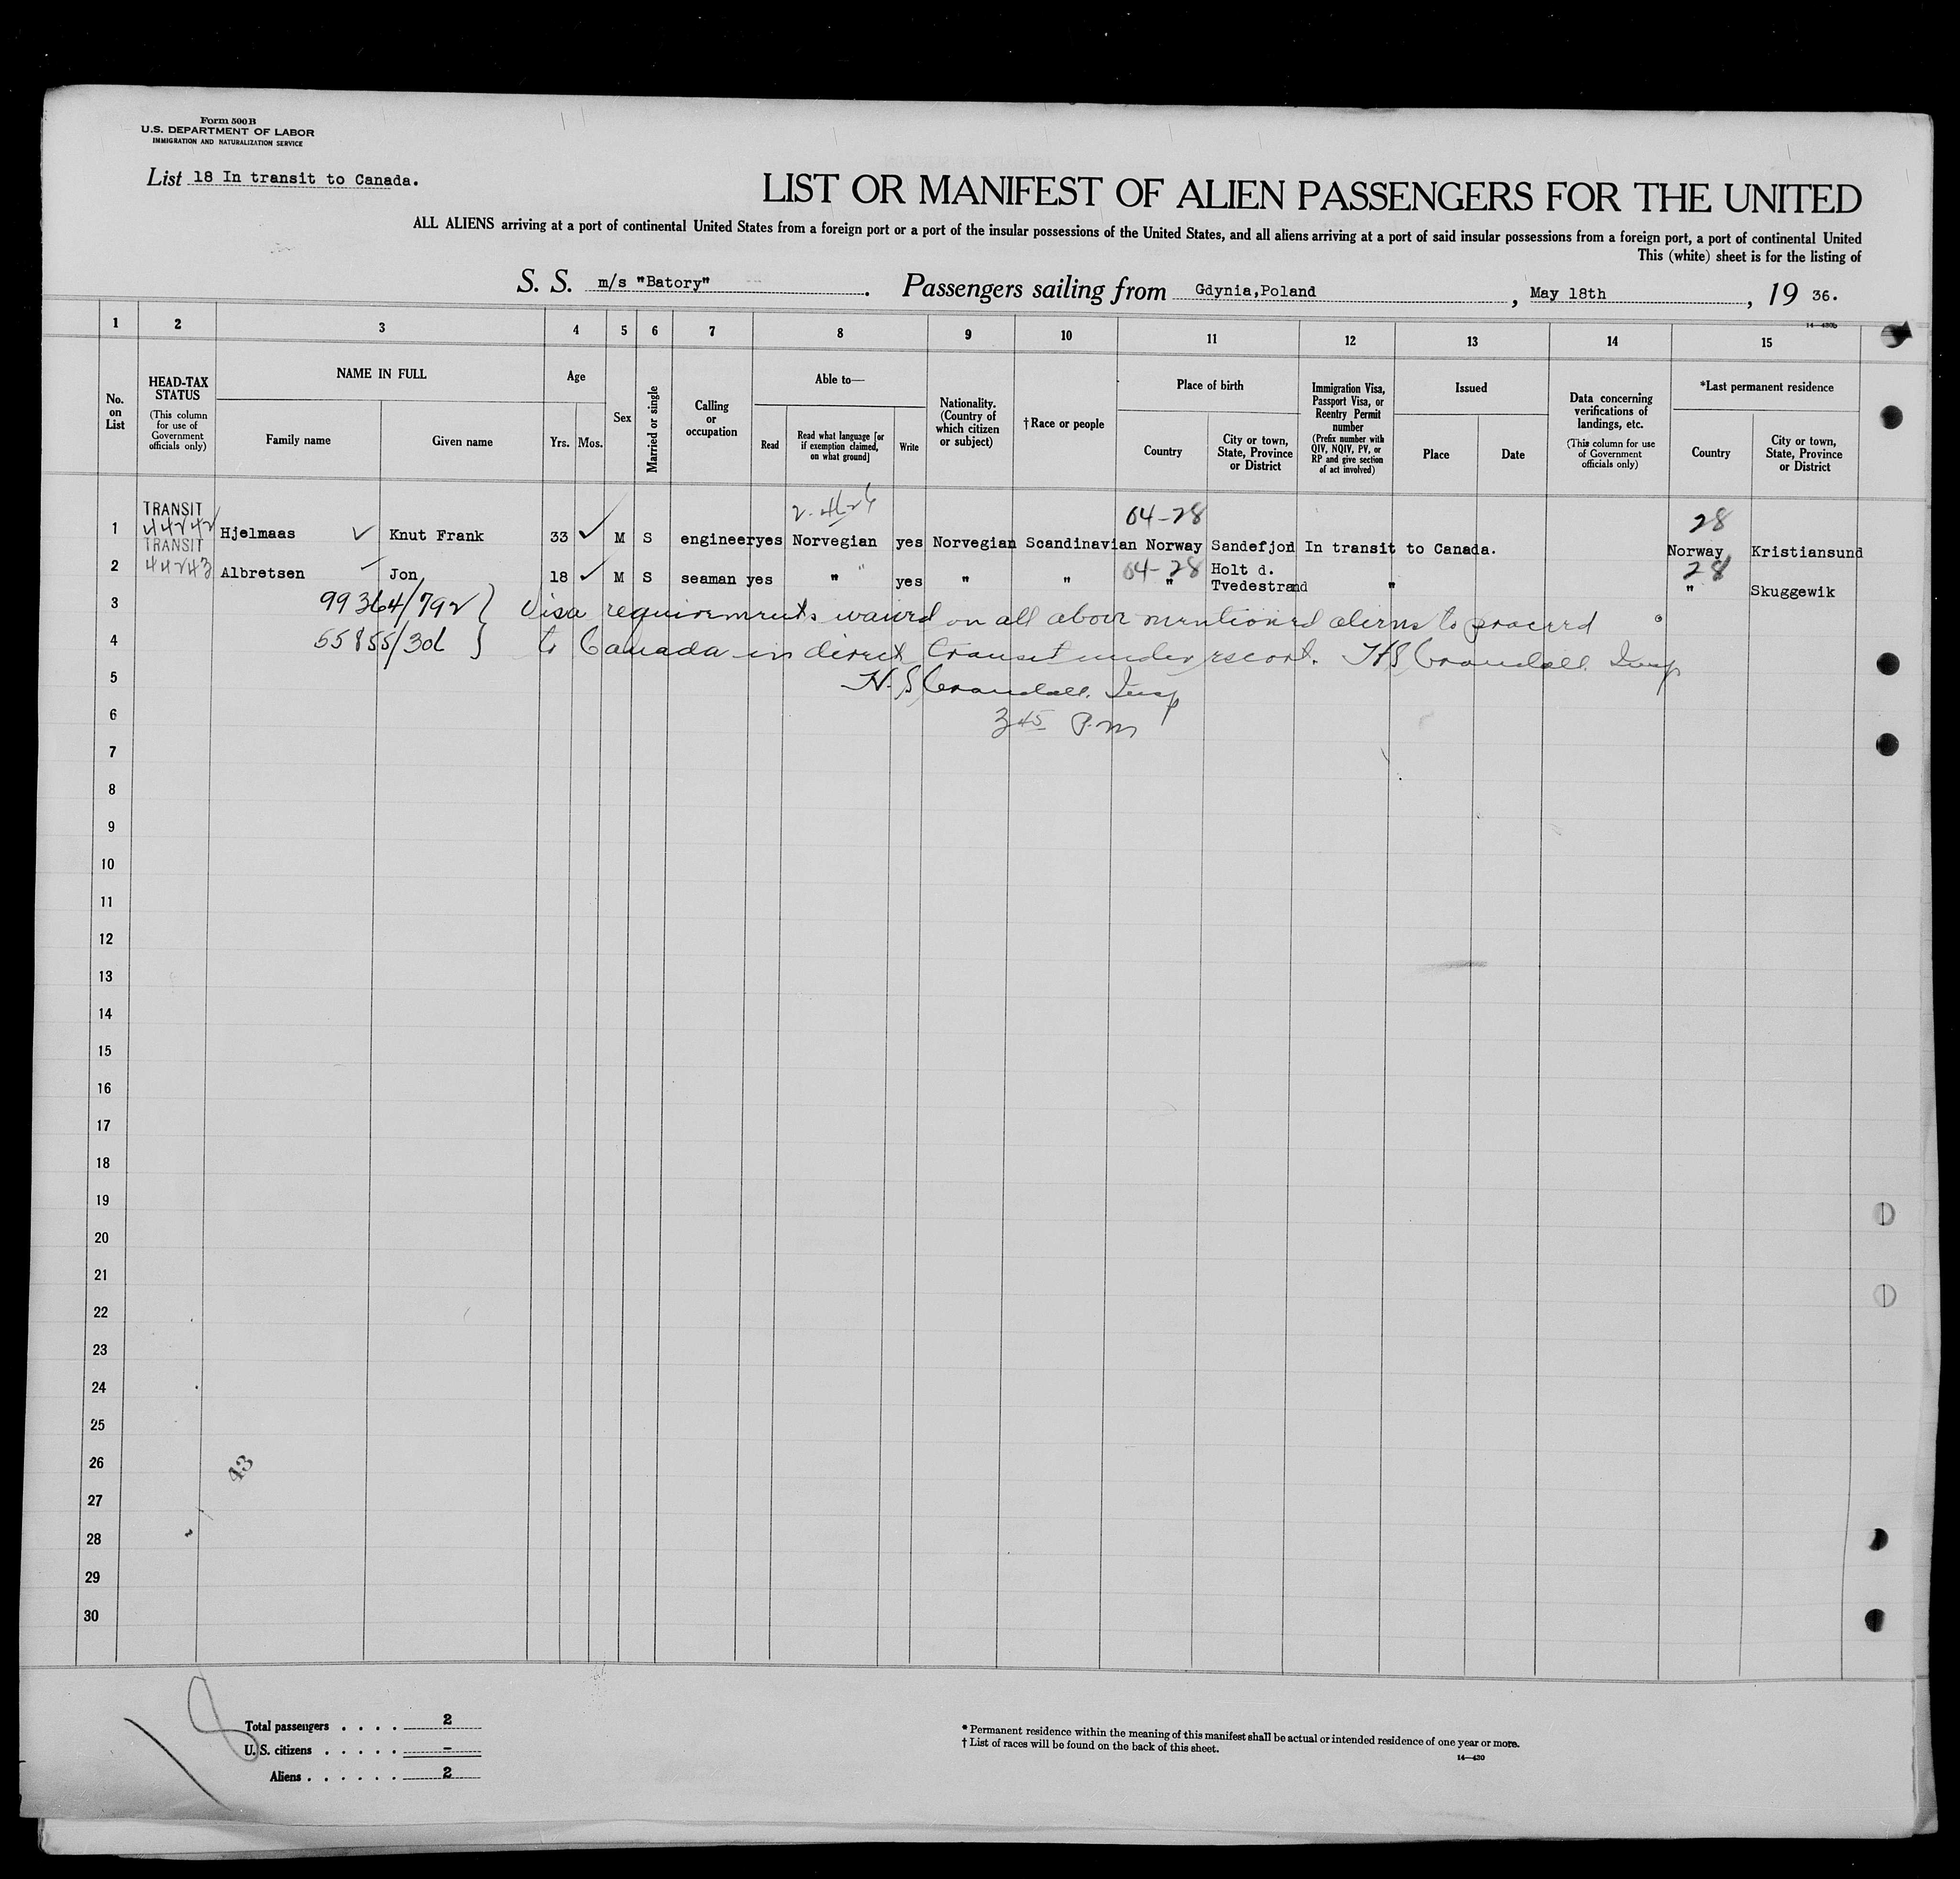 Form 500B
U.S. DEPARTMENT OF LABOR
IMMIGRATION AND NATURALIZATION SERVICE
List 18 In transit to Canada.
LIST OR MANIFEST OF ALIEN PASSENGERS FOR THE UNITED
ALL ALIENS arriving at a port of continental United States from a foreign port or a port of the insular possessions of the United States, and all aliens arriving at a port of said insular possessions from a foreign port, a port of continental United
This (white) sheet is for the listing of
S. S. m/s "Batory" . Passengers sailing from Gdynia,Poland , May 18th , 19 36.
14—430b
1 2 3 4 5 6 7 8 9 10 11 12 13 14 15
No. on List
HEAD-TAX STATUS
(This column for use of Government officials only)
NAME IN FULL
Family name
Given name
Age
Yrs. Mos.
Sex
Married or single
Calling or occupation
Able to—
Read
Read what language [or if exemption claimed, on what ground]
Write
Nationality. (Country of which citizen or subject)
†Race or people
Place of birth
Country
City or town, State, Province or District
Immigration Visa, Passport Visa, or Reentry Permit number
(Prefix number with QIV, NQIV, PV, or RP and give section of act involved)
Issued
Place
Date
Data concerning verifications of landings, etc.
(This column for use of Government officials only)
*Last permanent residence
Country
City or town, State, Province or District
TRANSIT
04-28 28
1 44242 Hjelmaas ✓ Knut Frank 33 ✓ M S engineer yes Norwegian yes Norwegian Scandinavian Norway Sandefjod In transit to Canada. Norway Kristiansund
TRANSIT
04-28 Holt d. 28
2 44243 Albretsen ✓ Jon 18 ✓ M S seaman yes " yes " " " Tvedestrand " " Skuggewik
3 99364/792 } Visa requirements waived on all above mentioned aliens to proceed
4 55855/302 } to Canada in direct transit under escort. HS Crandall Insp
5 H.S Crandall. Insp
6 3 45 P.m
7
8
9
10
11
12
13
14
15
16
17
18
19
20
21
22
23
24
25
26
43
27
28
29
30
18
Total passengers . . . . 2
U. S. citizens . . . . . –
Aliens . . . . . . 2
* Permanent residence within the meaning of this manifest shall be actual or intended residence of one year or more.
† List of races will be found on the back of this sheet.
14—430